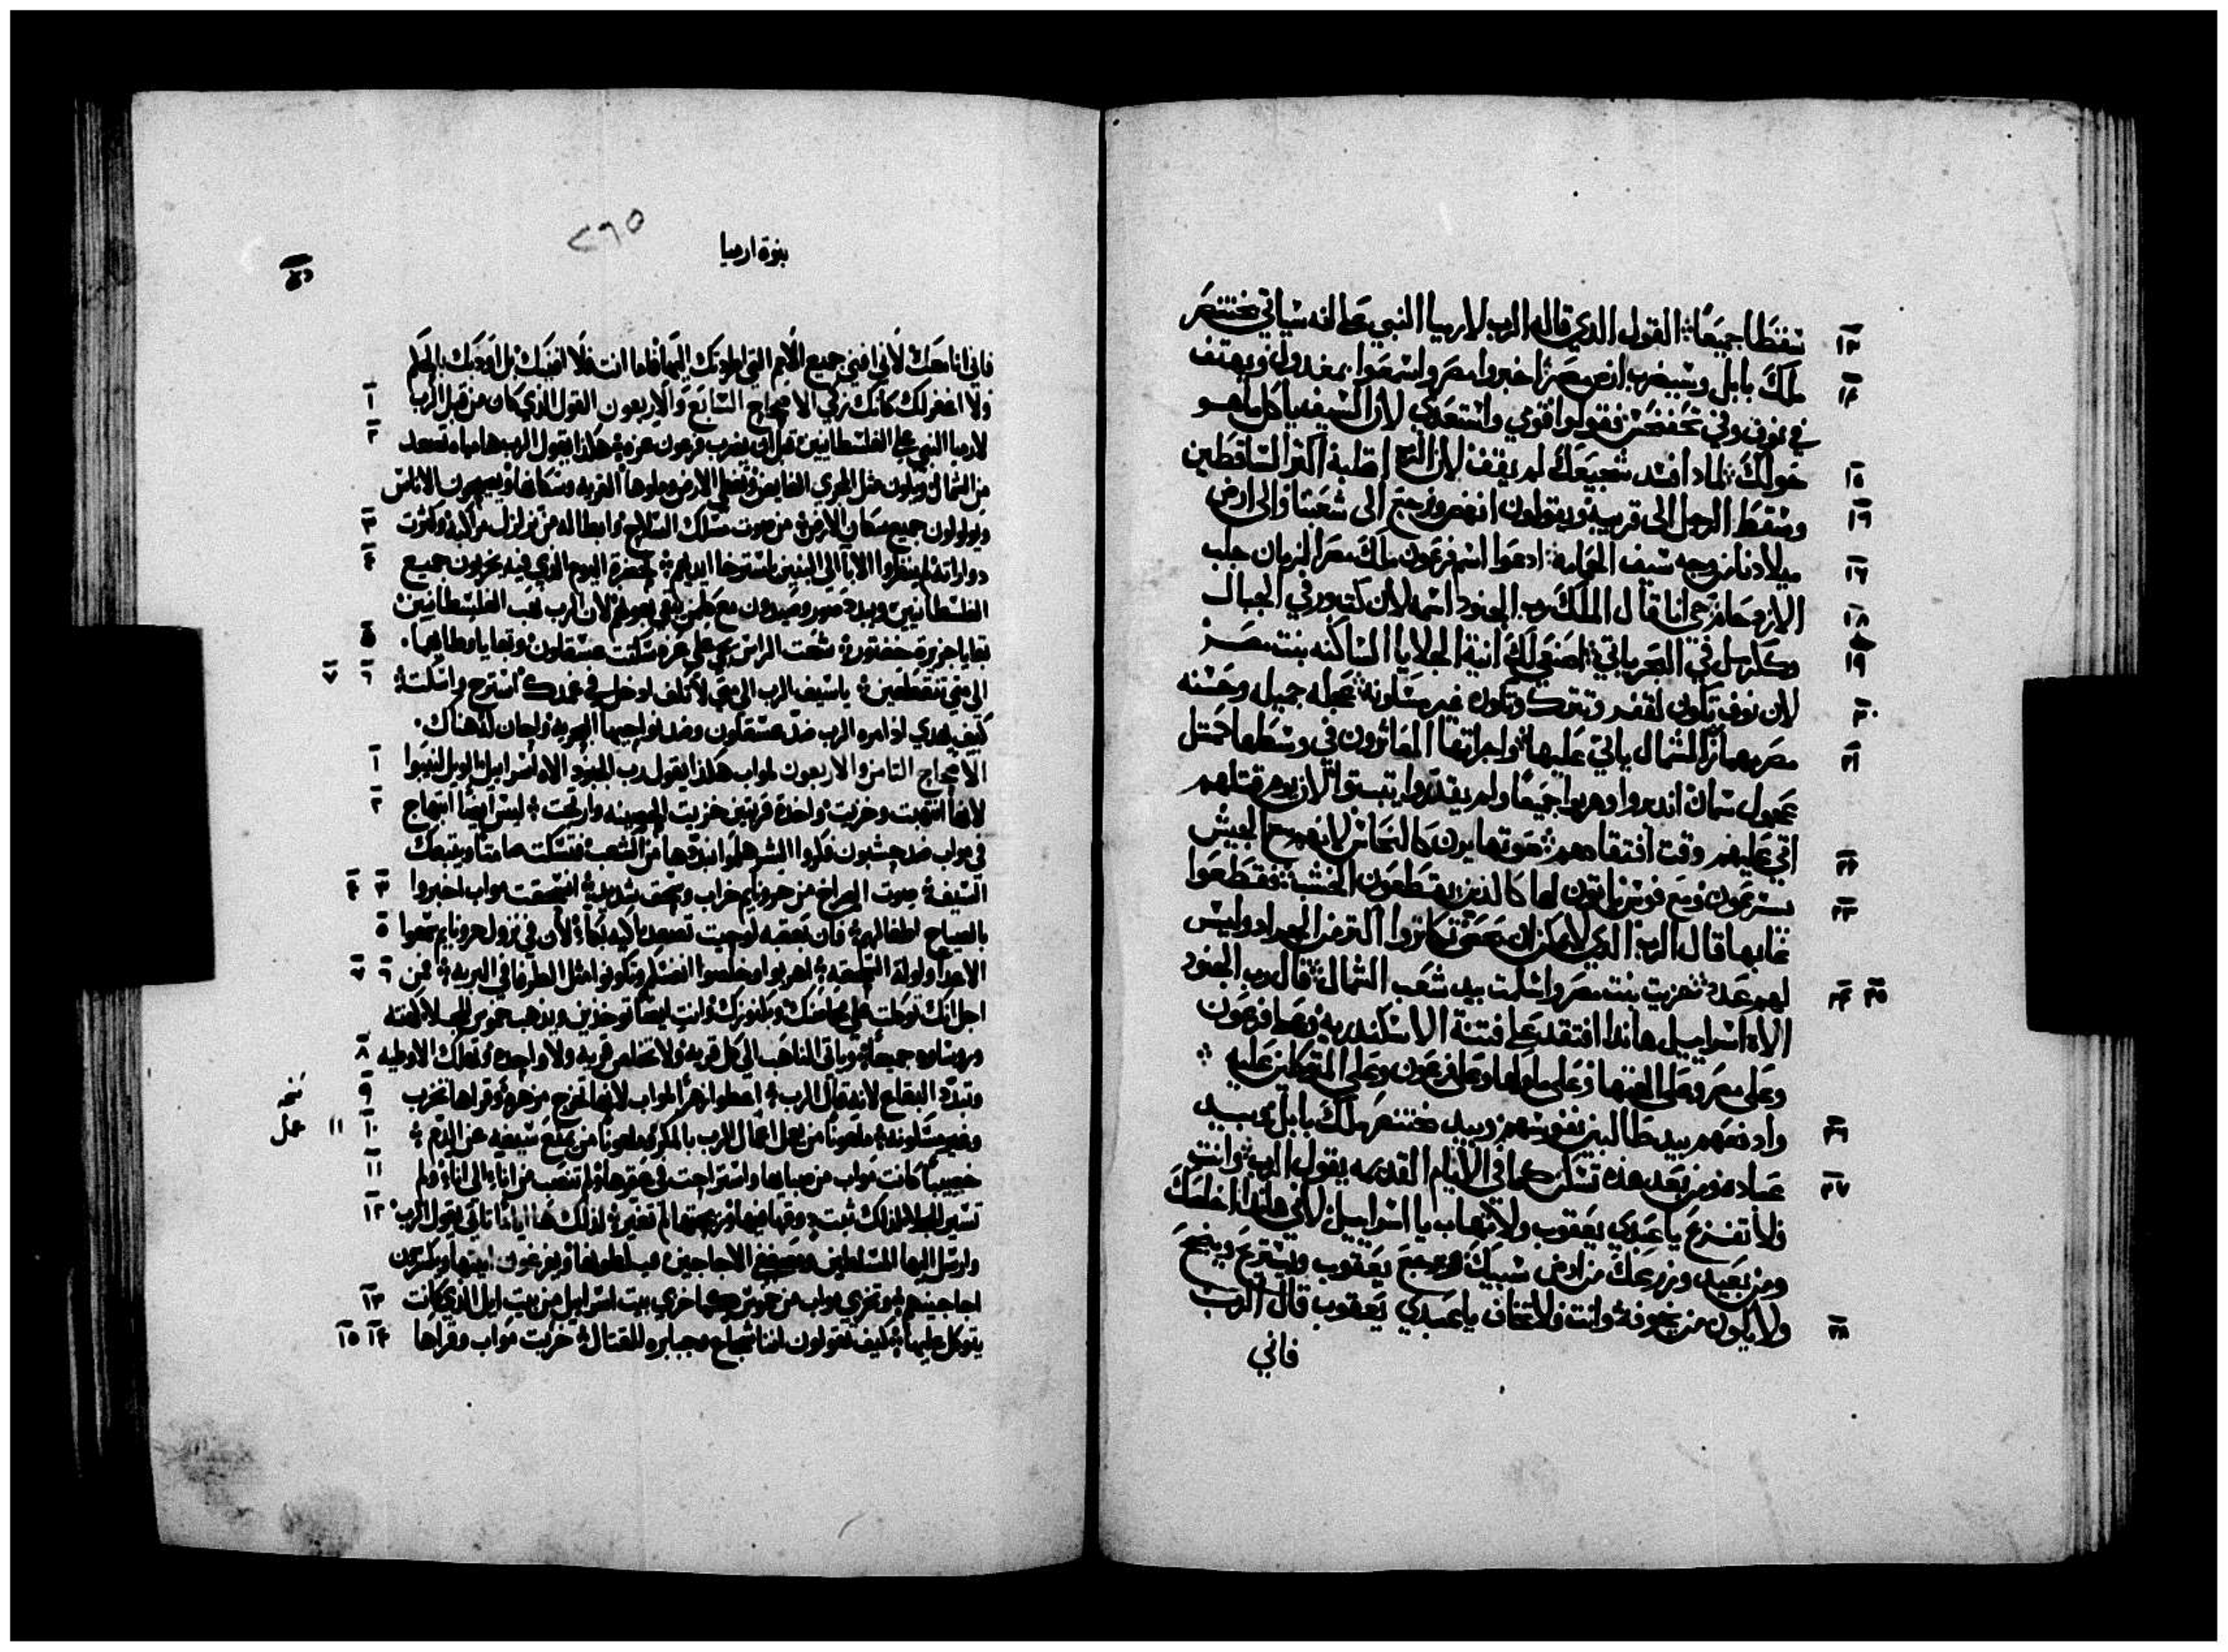 ١٣ سقطا جميعًا: القول الذي قاله الرب لارميا النبي على انه سياتي بختنصر
١٤ ملك بابل وسيضرب ارض مصر: اخبروا مصر واسمعوا بمغدول ويهتف
في نوف وفي تحفنحس فقولوا قومي واستعدي لان السيف ياكل ما هو
١٥ حولك: لماذا فسد شجيعك لم يقف لان الرب اقلبه: اكثر الساقطين
١٦ وسقط الرجل الى قريبه ويقولون انهض ونرجع الى شعبنا والى ارض
١٧ ميلادنا من وجه سيف اليمامه: ادعوا اسم فرعون ملك مصر الزمان جلب
١٨ الارجحا: حي انا قال الملك رب الجنود اسمه لان كتبور في الجبال
١٩ وكرمل في البحر ياتي: اصنعي لك انية الجلايا الساكنه بنت مصر
لان نوف تكون لقفر وتترك وتكون غير مسكونه:
٢٠ عجله جميله وحسنه
٢١ مصر مهماز الشمال ياتي عليها: واجراتها الماثرون في وسطها كمثل
عجول سمان اندبروا وهربوا جميعًا ولم يقدروا يثبتوا لان يوم قتلهم
٢٢ اتي عليهم وقت افتقادهم: صوتها يرن كالنحاس لانهم مع الجيش
٢٣ يسرعون ومع فوس ياتون لها كالذين يقطعون الخشب: وقطعوا
غابها قال الرب الذي لا يمكن ان يحصى تكاثروا اكثر من الجراد وليس
٢٤ ٢٥ لهم عدد: خزيت بنت مصر واسلمت بيد شعب الشمال: قال رب الجنود
الاه اسراييل هانذا افتقد على فتنة الاسكندريه وعلى فرعون
وعلى مصر وعلى الهتها وعلى ملوكها وعلى فرعون وعلى المتوكلين عليه:
٢٦ وادفعهم بيد طالبين نفوسهم وبيد بختنصر ملك بابل وبيد
٢٧ عباده ومن بعد هذه تسكن كما في الايام القديمه يقول الرب: وانت
فلا تفزع يا عبدي يعقوب ولا تهاب يا اسراييل لاني هانذا اخلصك
ومن بعيد وزرعك من ارض سبيك ويرجع يعقوب ويستريح وينجح
٢٨ ولا يكون من يخوفه: وانت فلا تخاف يا عبدي يعقوب قال الرب
فاني
نبوة ارميا
٢٦٥
فاني انا معك لاني افني جميع الامم التي طردتك اليها فاما انت فلا افنيك بل اودبك بالحكم
١ ولا اغفر لك كانك زكي الاصحاح السابع والاربعون القول الذي كان من قبل الرب
٢ لارميا النبي على الفلسطانيين قبل ان يضرب فرعون غزه: هكذا يقول الرب ها مياه تصعد
من الشمال ويكون مثل المجري الفايض وتغطي الارض وملوها القريه وسكانها ويصيحون الاناس
٣ ويولولون جميع سكان الارض: من صوت سلاح وابطاله من تزلزل مراكبه وكثرت
٤ دواراته لم ينظروا الابا الى البنين باسترخا ايديهم: بحضرة اليوم الذي فيه يخربون جميع
الفلسطانيين ويبدد صور وصيدون مع كل من بقي لعونهم لان الرب نهب الفلسطانيين
٥ بقايا جزيرة كفتور: شعث الراس يجي على غزه سكتت عسقلون وبقايا وطايهما.
٦ ٧ الى متى تتقطعين: يا سيف الرب الى متى لا تكف ادخل في غمدك استرح واسكت:
كيف يهدي اذ امره الرب ضد عسقلون وضد نواحيها البحريه ولجان له هناك.
١ الاصحاح الثامن والاربعون لمواب هكذا يقول رب الجنود الاه اسراييل الويل لنبوا
٢ لانها انتهبت وخزيت واخذة قريتين خزيت الحصينه وارتجت: ليس ايضا ابتهاج
في مواب ضد حشبون فكروا الشر هلموا نبددها من الشعب فتسكت صامتا ويتبعك
٣ ٤ السيف: صوت الصراخ من حورونايم خراب وسحق شديد: انسحقت مواب اخبروا
٥ بالصياح لطفالهم: فان بعقبه لوحيت تصعد باكيه ببكا: لان في نزول حورونايم سمعوا
٦ ٧ الاعدا ولولة التشعيه: اهربوا وخلصوا انفسكم وتكونوا مثل الطرفا في البريه: فمن
اجل انك توكلت على حصونك وكنوزك وانت ايضا توخذين ويذهب كموس للجلا كهنته
٨ وروساوه جميعا: وياتي الناهب الى كل قريه ولا تخلص قريه ولا واحده وتهلك الاوديه
٩ وتبدد البقاع لانه قال الرب: اعطوا زهرا لمواب لانها تخرج مزهره وقراها تخرب
١٠ وغير مسكونه: ملعونا من يعمل اعمال الرب بالمكر وملعونا من يمنع سيفه عن الدم:
١١ خصيبا كانت مواب من صباها واستراحت في عكرها ولم تنصب من اناء الى اناء ولم
١٢ تسير للجلا لذلك ثبت ذوقها فيها وريحتها لم تتغير: لذلك ها اياما تاتي يقول الرب
وارسل اليها المسلطين ومصففي الاجاجين فيسلطونها ويفرغون انيتها ويكسرون
١٣ اجاجينهم: وتخزي مواب من كموس كما خزي بيت اسراييل من بيت ايل الذي كانت
١٤ ١٥ يتوكل عليها: كيف تقولون اننا شجاع وجبابره للقتال: خربت مواب وقراها